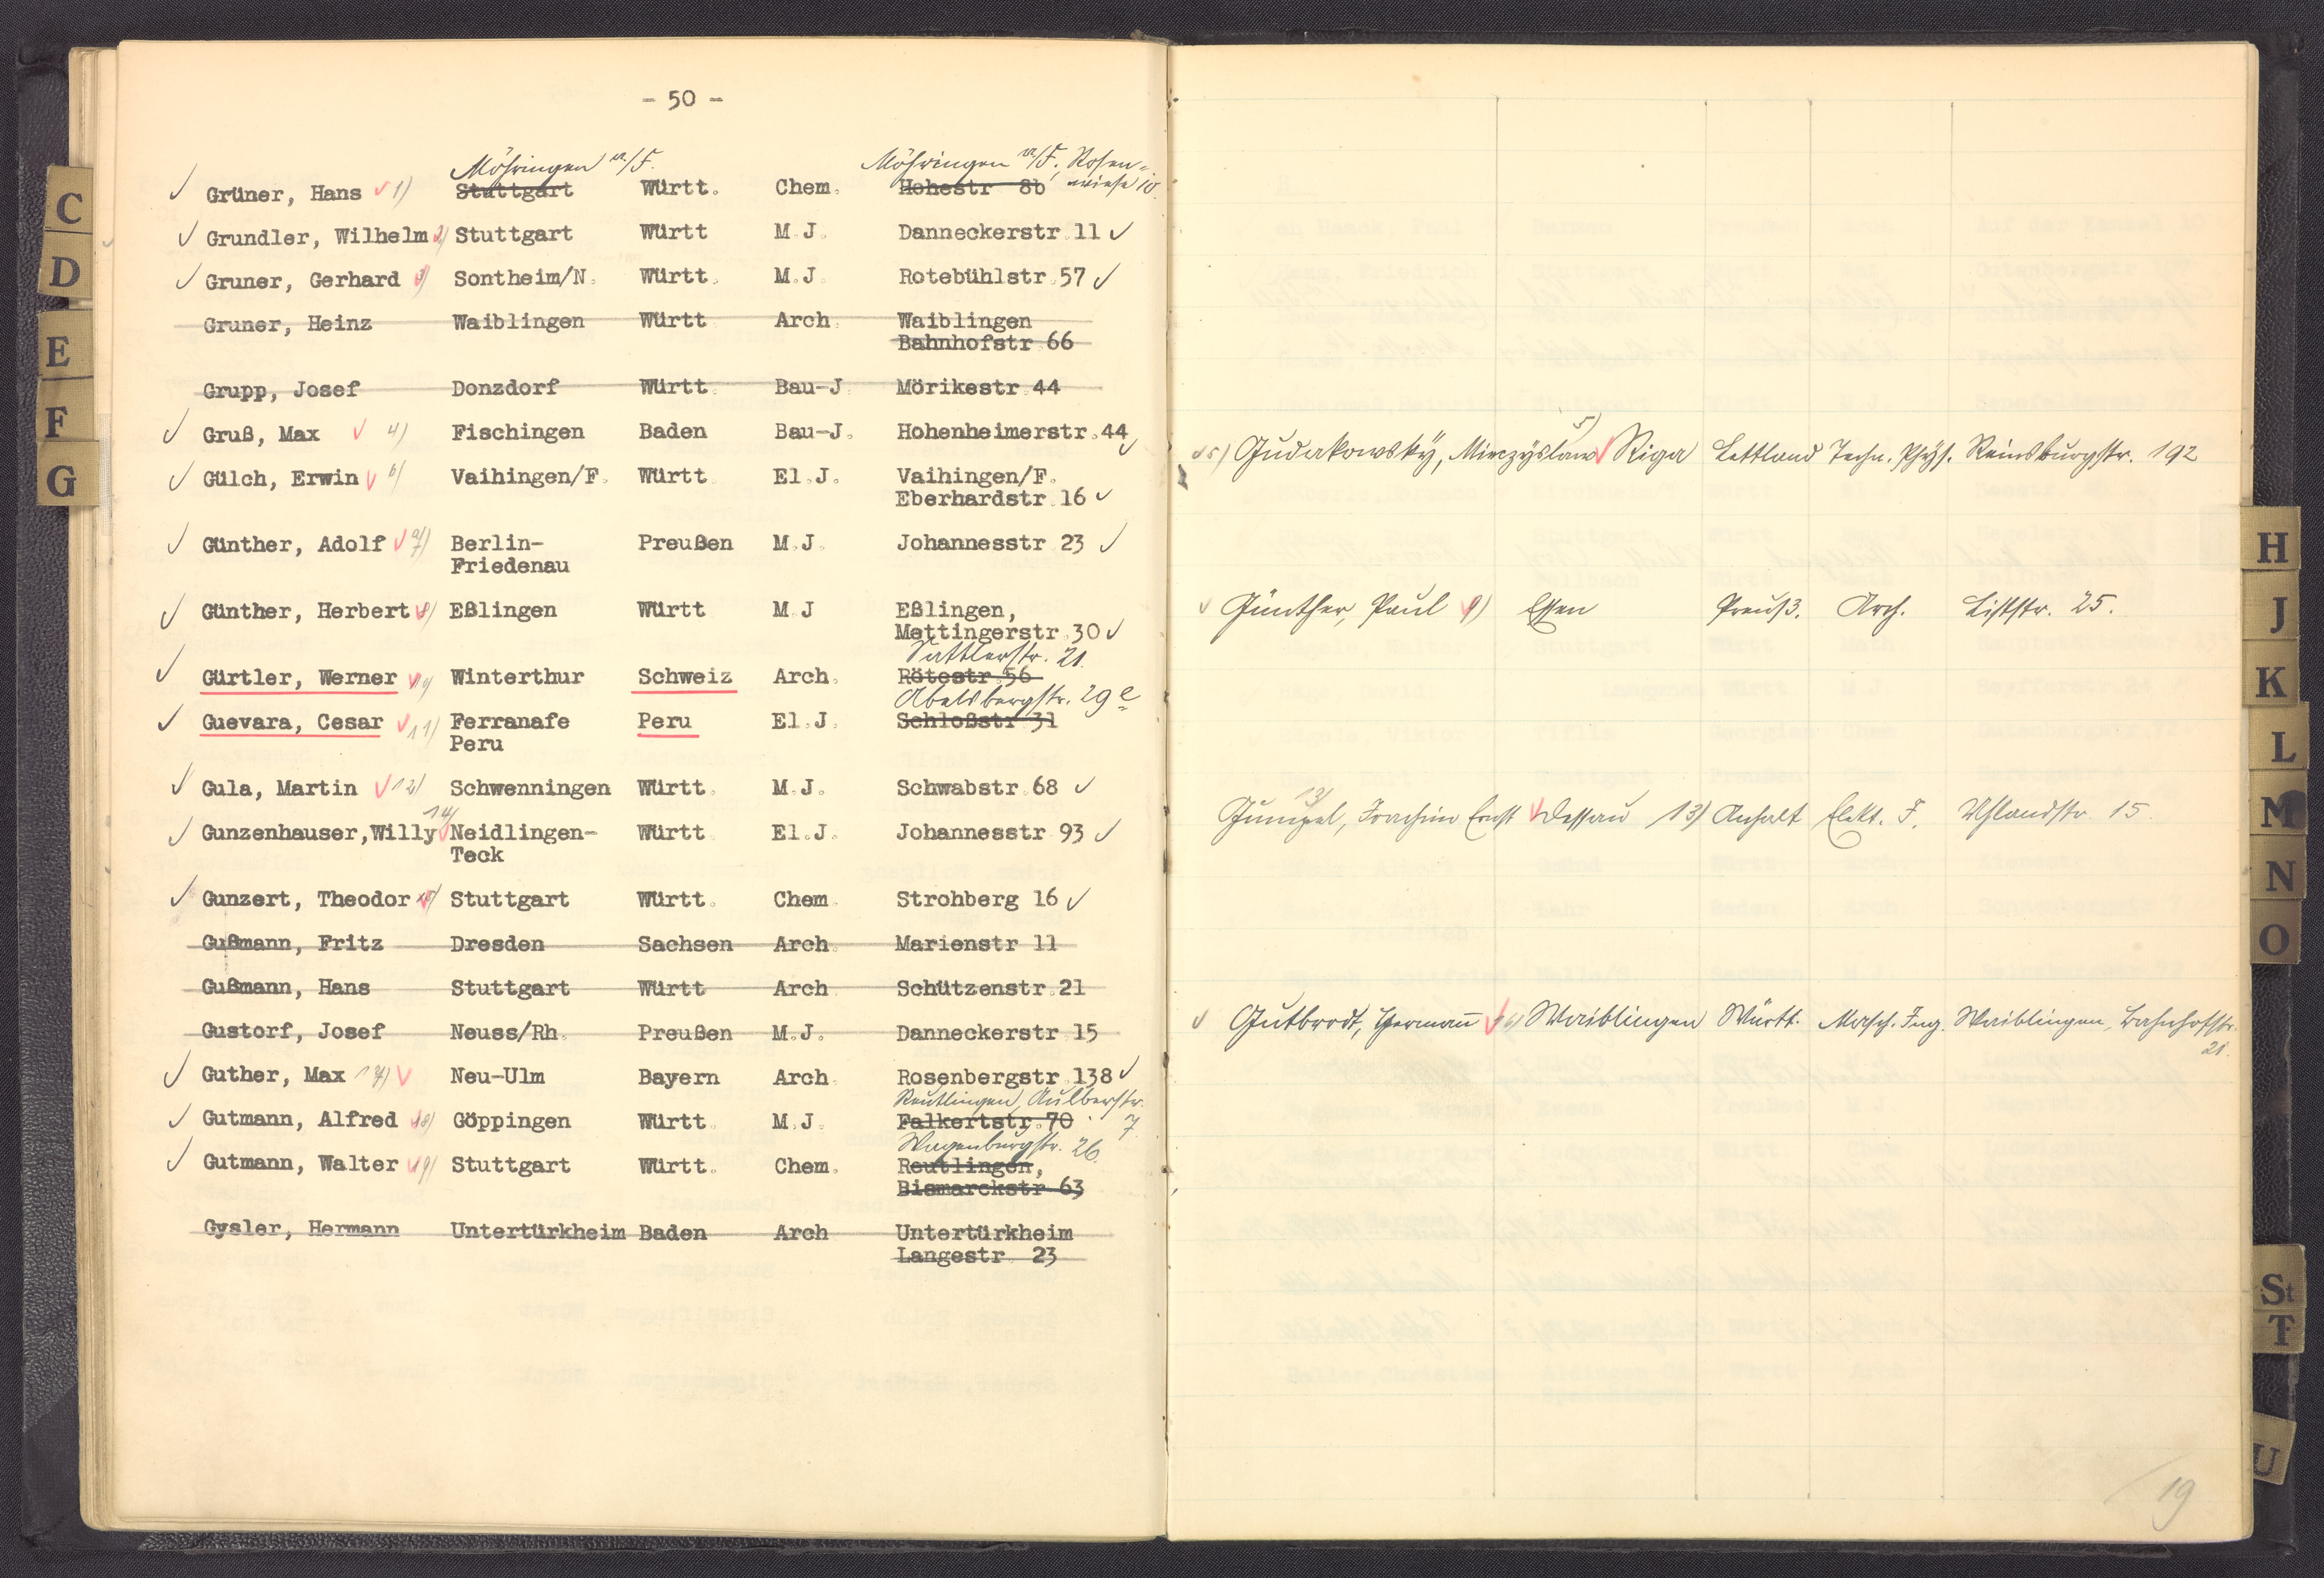 - 50 -
Möhringen a./F. Möhringen a./F., Rosen-
Grüner, Hans 1) Stuttgart Württ. Chem. Hohestr 8b wiese 10.
Grundler, Wilhelm 2) Stuttgart Württ M.J. Danneckerstr.11
Gruner, Gerhard 3) Sontheim/N. Württ. M.J. Rotebühlstr.57
Gruner, Heinz Waiblingen Württ Arch. Waiblingen
Bahnhofstr.66
Grupp, Josef Donzdorf Württ. Bau-J. Mörikestr.44
Gruß, Max 4) Fischingen Baden Bau-J. Hohenheimerstr.44
Gülch, Erwin 6) Vaihingen/F. Württ. El.J. Vaihingen/F.
Eberhardstr.16
Günther, Adolf 7) Berlin- Preußen M.J. Johannesstr 23
Friedenau
Günther, Herbert 8) Eßlingen Württ M.J Eßlingen,
Mettingerstr.30
Sattlerstr. 21.
Gürtler, Werner 10) Winterthur Schweiz Arch. Rötestr.56
Abelsbergstr. 29e
Guevara, Cesar 11) Ferranafe Peru El.J. Schloßstr 31
Peru
Gula, Martin 12) Schwenningen Württ. M.J. Schwabstr.68
14)
Gunzenhauser,Willy Neidlingen- Württ. El.J. Johannesstr.93
Teck
Gunzert, Theodor 15) Stuttgart Württ. Chem. Strohberg 16
Gußmann, Fritz Dresden Sachsen Arch. Marienstr 11
Gußmann, Hans Stuttgart Württ Arch Schützenstr.21
Gustorf, Josef Neuss/Rh. Preußen M.J. Danneckerstr.15
Guther, Max 17) Neu-Ulm Bayern Arch. Rosenbergstr.138
Reutlingen, Aulberstr.
Gutmann, Alfred 18) Göppingen Württ. M.J. Falkertstr.70 7.
Wagenburgstr. 26.
Gutmann, Walter 19) Stuttgart Württ. Chem. Reutlingen,
Bismarckstr.63
Gysler, Hermann Untertürkheim Baden Arch Untertürkheim
Langestr. 23
5)
5) Gudakowsky, Mieczyslaw Riga Lettland Techn. Phys. Reinsburgstr. 192
Günther, Paul 9) Essen Preuß. Arch. Liststr. 25.
13)
Gumpel, Joachim Ernst Dessau 13) Anhalt Elekt. J. Uhlandstr. 15.
Gutbrodt, Hermann 16) Waiblingen Württ. Masch. Ing. Waiblingen, Bahnhofstr.
21.
19
C
D
E
F
G
H
J
K
L
M
N
O
St
T
U